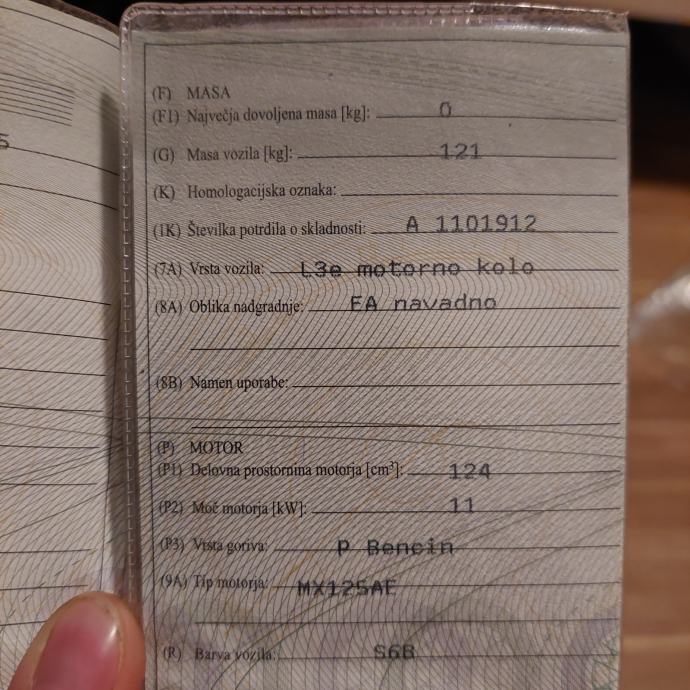 5
(F) MASA
(F1) Največja dovoljena masa [kg]: 0
(G) Masa vozila [kg]: 121
(K) Homologacijska oznaka:
(1K) Številka potrdila o skladnosti: A 1101912
(7A) Vrsta vozila: L3e motorno kolo
(8A) Oblika nadgradnje: EA navadno
(8B) Namen uporabe:
(P) MOTOR
(P1) Delovna prostornina motorja [cm³]: 124
(P2) Moč motorja [kW]: 11
(P3) Vrsta goriva: P Bencin
(9A) Tip motorja: MX125AE
(R) Barva vozila: S6B